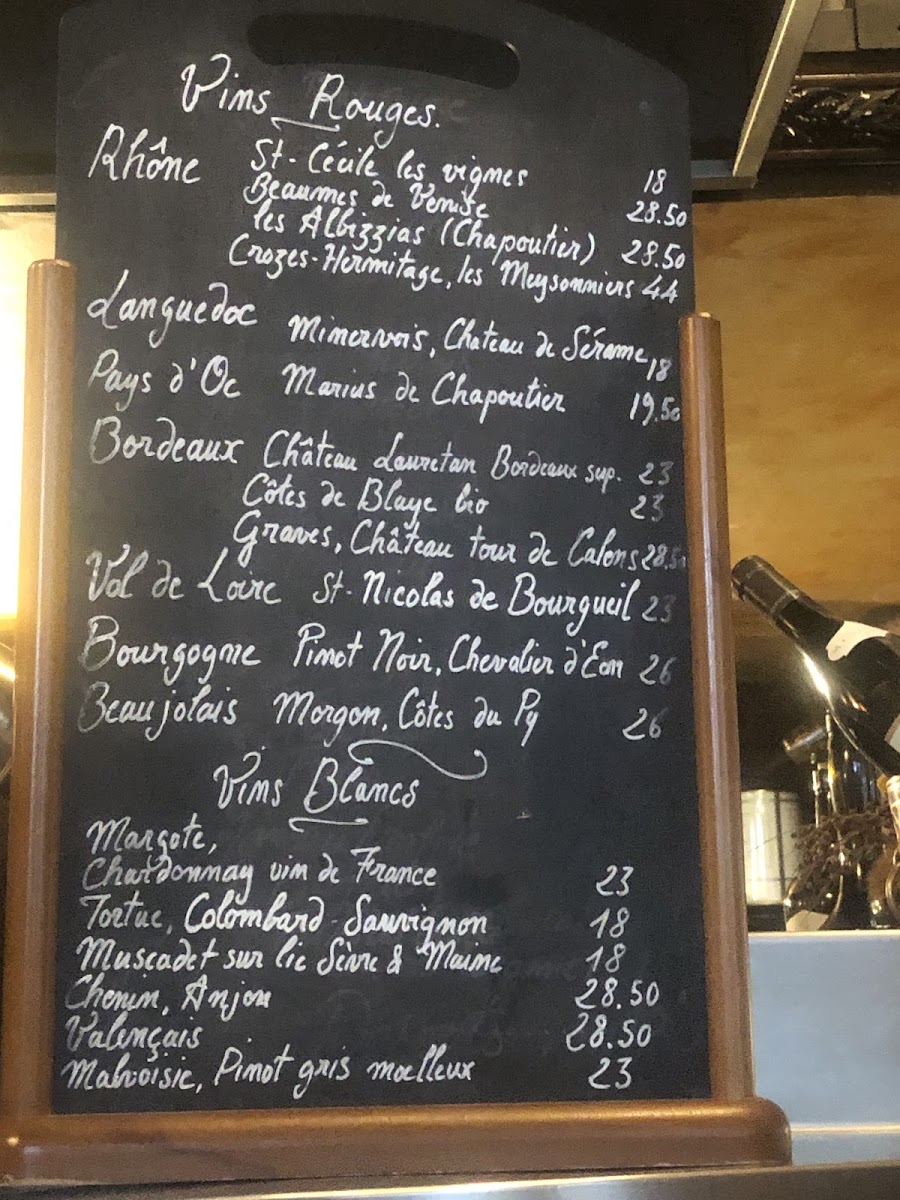 Vins Rouges.
Rhône St-Cécile les vignes 18
Beaumes de Venise 28.50
les Albizzias (Chapoutier) 28.50
Crozes-Hermitage, les Meysonniers 44
Languedoc Minervois, Chateau de Sérame, 18
Pays d'Oc Marius de Chapoutier 19.50
Bordeaux Château Lauretan Bordeaux sup. 23
Côtes de Blaye bio 23
Graves, Château tour de Calons 28.50
Val de Loire St-Nicolas de Bourgueil 23
Bourgogne Pinot Noir, Chevalier d'Eon 26
Beaujolais Morgon, Côtes du Py 26
Vins Blancs
Margote,
Chardonnay vin de France 23
Tortue, Colombard-Sauvignon 18
Muscadet sur lie Sèvre & Maine 18
Chenin, Anjou 28.50
Valençais 28.50
Malvoisie, Pinot gris moelleux 23